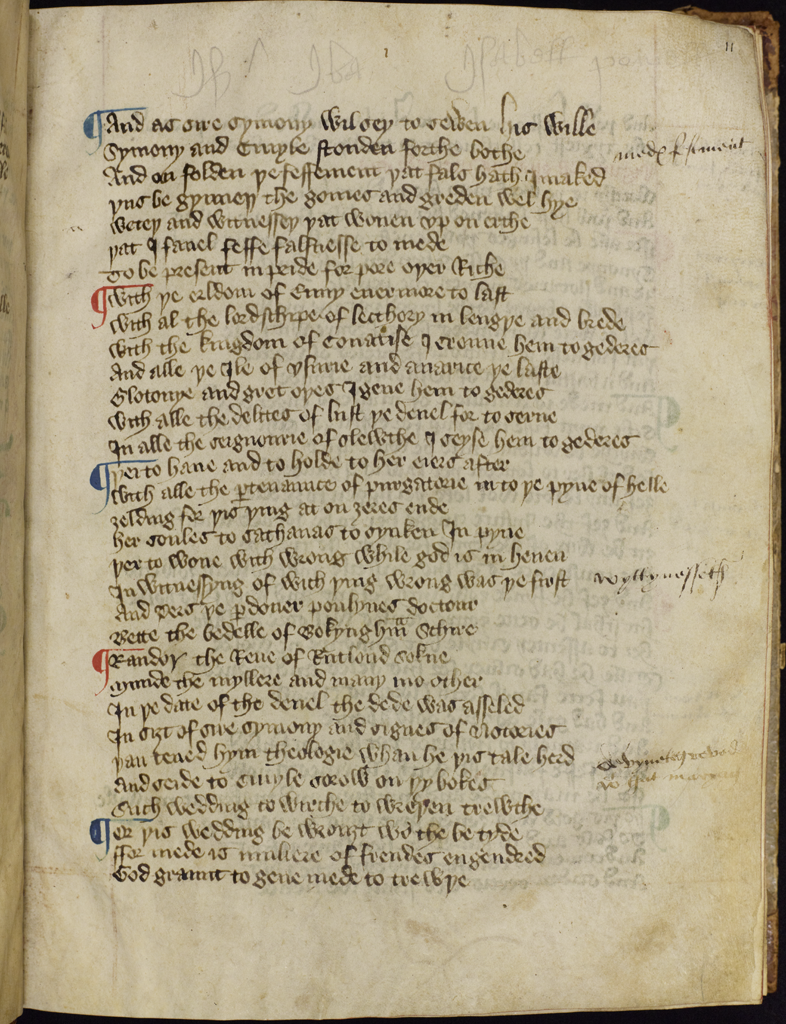 11
And as sire symony wil sey to sewen his wille
Symony and Ciuyle stonden forthe bothe
medx ffement
And on folden þe feffement þat fals hath I maked
þus be gynney the gomes and greden wel hye
wetey and witnessey þat wonen vp on erthe
þat I fauel feffe falsnesse to mede
To be present in pride for pore oþer Riche
with þe erldom of Enuy euermore to last
with al the lordschipe of lecthory in lengþe and brede
with the kingdom of couatise I croune hem to gederes
And alle þe Ile of vsurie and auarice þe faste
Glotonye and gret oþes I geue hem to gederes
with alle the delites of lust þe deuel for to serue
In alle the sergnourie of slewthe I seyse hem to gederes
þerto haue and to holde to her eiers after
with alle the ptenaunce of purgatorie in to þe pyne of helle
zelding for þis þing at on zeres ende
her soules to sathanas to synken In pyne
þer to wone with wrong while god is in heuen
In witnessyng of with þing wrong was þe first
wyttynesseth
And Pers þe pdoner poulynes doctour
Bette the bedelle of Bokynghm Schire
Randoy the Reue of Rutloud sokne
Munde the myllere and many mo other
In þe date of the deuel the dede was asseled
In sizt of sire symony and signes of notories
þan tened hym theologie whan he þis tale herd
And seide to Ciuyle sorow on þy bokes
Such wedding to wirche to wreþen trewthe
Er þis wedding be wrouzt wo the be tyde
ffor mede is muliere of frendes engendred
God graunt to geue mede to trewþe